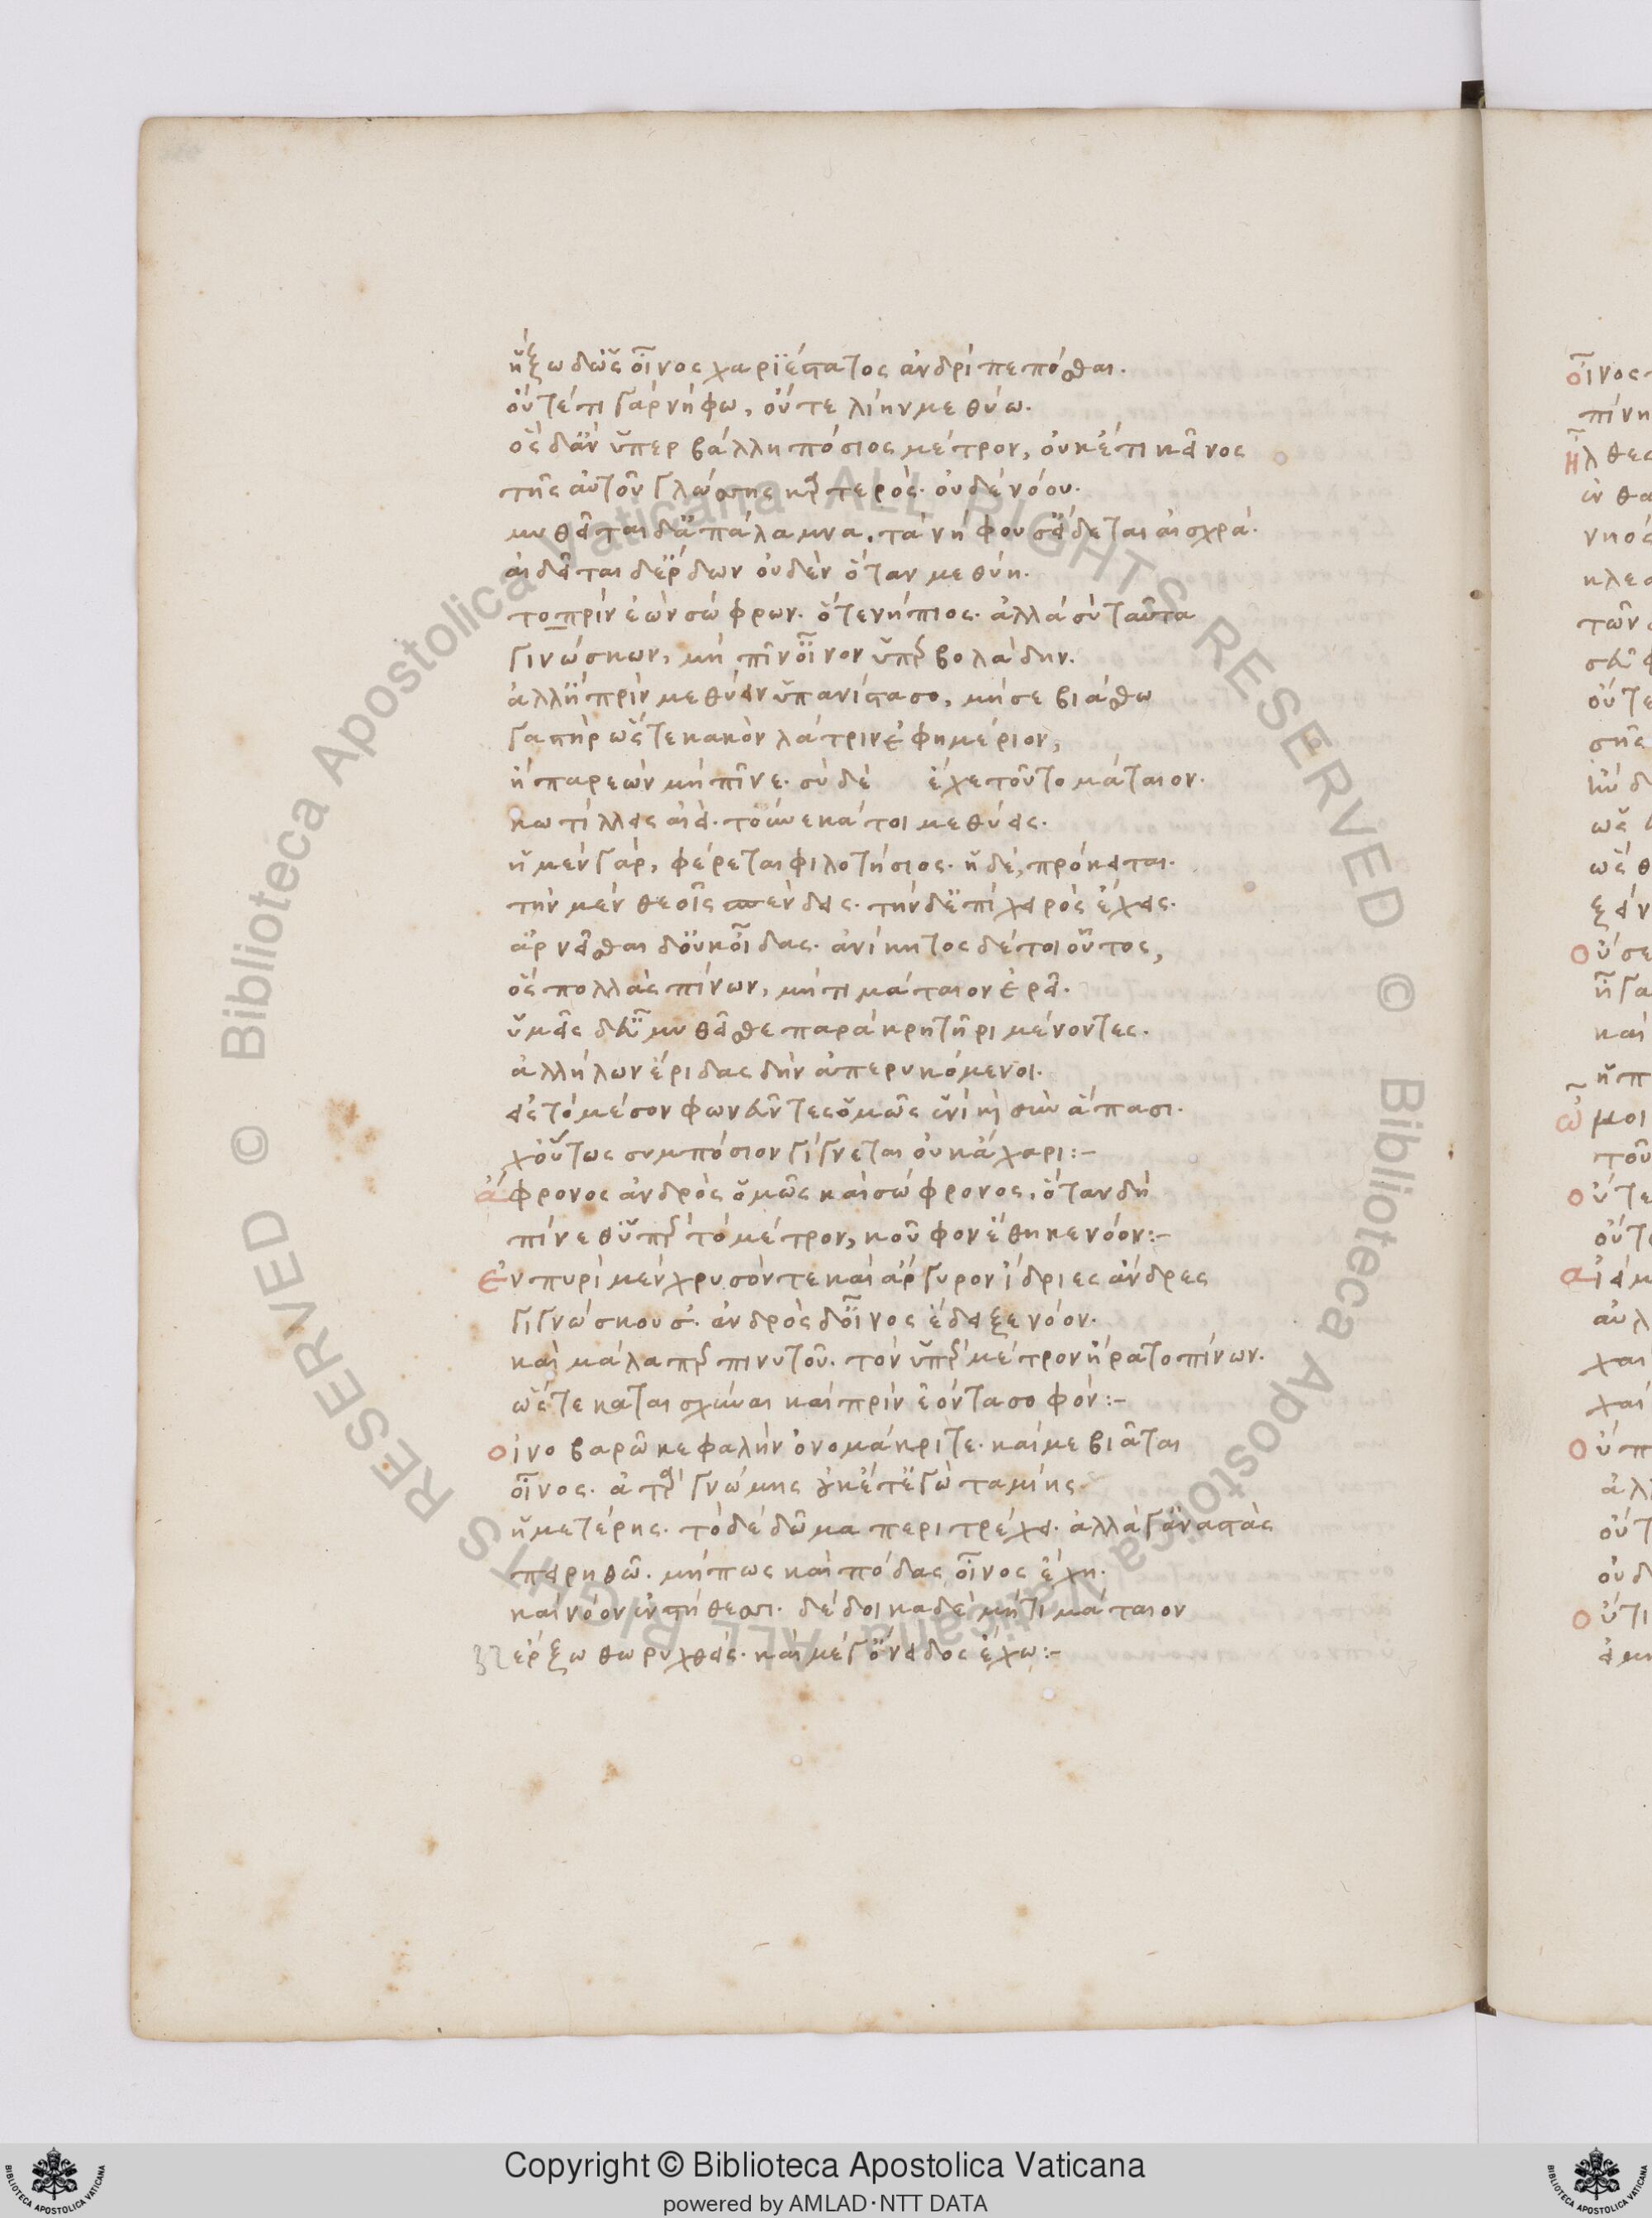 ἥξω δ' ὡς οἶνος χαριέστατος ἀνδρὶ πεπόσθαι.
οὔτέ τι γὰρ νήφω, οὔτε λίην μεθύω.
ὃς δ' ἂν ὑπερβάλλῃ πόσιος μέτρον, οὐκέτι κεῖνος
τῆς αὐτοῦ γλώσσης καρτερὸς· οὐδὲ νόου.
μυθεῖται δ' ἀπάλαμνα. τὰ νήφουσ' εἴδεται αἰσχρά.
αἰδεῖται δ' ἔρδων οὐδὲν ὅταν μεθύῃ.
τοπρὶν ἐὼν σώφρων. ὅτε νήπιος. ἀλλὰ σὺ ταῦτα
γινώσκων, μὴ πῖν' οἶνον ὑπερβολάδην.
ἀλλ' ἢ πρὶν μεθύειν ὑπανίστασο, μή σε βιάσθω
γαστὴρ ὥστε κακὸν λάτριν ἐφημέριον,
ἢ παρεὼν μὴ πῖνε. σὺ δὲ ἔχε τοῦτο μάταιον.
κωτίλλεις αἰεί. τοὔνεκά τοι μεθύεις.
ἡ μὲν γὰρ, φέρεται φιλοτήσιος. ἡ δὲ, πρόκειται.
τὴν μὲν θεοῖς σπένδεις. τὴν δ' ἐπὶ χειρὸς ἔχεις.
ἀρνεῖσθαι δ' οὐκ οἶδας. ἀνίκητος δέ τοι οὗτος,
ὃς πολλὰς πίνων, μή τι μάταιον ἐρεῖ.
ὑμεῖς δ' εὖ μυθεῖσθε παρὰ κρητῆρι μένοντες.
ἀλλήλων ἔριδας δὴν ἀπερυκόμενοι.
εἰς τὸ μέσον φωνεῦντες ὁμῶς ἑνὶ καὶ σὺν ἅπασι.
χοὔτως συμπόσιον γίγνεται οὐκ ἄχαρι:-
ἄφρονος ἀνδρὸς ὁμῶς καὶ σώφρονος. ὅταν δὴ
πίνεθ' ὑπὲρ τὸ μέτρον, κοῦφον ἔθηκε νόον:-
ἐν πυρὶ μὲν χρυσόν τε καὶ ἄργυρον ἴδριες ἄνδρες
γιγνώσκουσ'. ἀνδρὸς δ' οἶνος ἔδειξε νόον.
καὶ μάλα περ πινυτοῦ. τὸν ὑπὲρ μέτρον ἤρατο πίνων.
ὥστε καταισχῦναι καὶ πρὶν ἐόντα σοφόν:-
οἰνοβαρῶ κεφαλὴν ὀνομάκριτε. καί με βιᾶται
οἶνος. ἀτὰρ γνώμης οὐκέτ' ἐγὼ ταμίης
ἡμετέρης. τὸ δὲ δῶμα περιτρέχει. ἀλλ' ἄγ' ἀναστὰς
πειρηθῶ. μή πως καὶ πόδας οἶνος ἔχῃ.
καὶ νόον ἐν στήθεσσι. δέδοικα δὲ μή τι μάταιον
32 ἔρξω θωρηχθεὶς. καὶ μέγ' ὄνειδος ἔχω:-
Copyright © Biblioteca Apostolica Vaticana
powered by AMLAD·NTT DATA